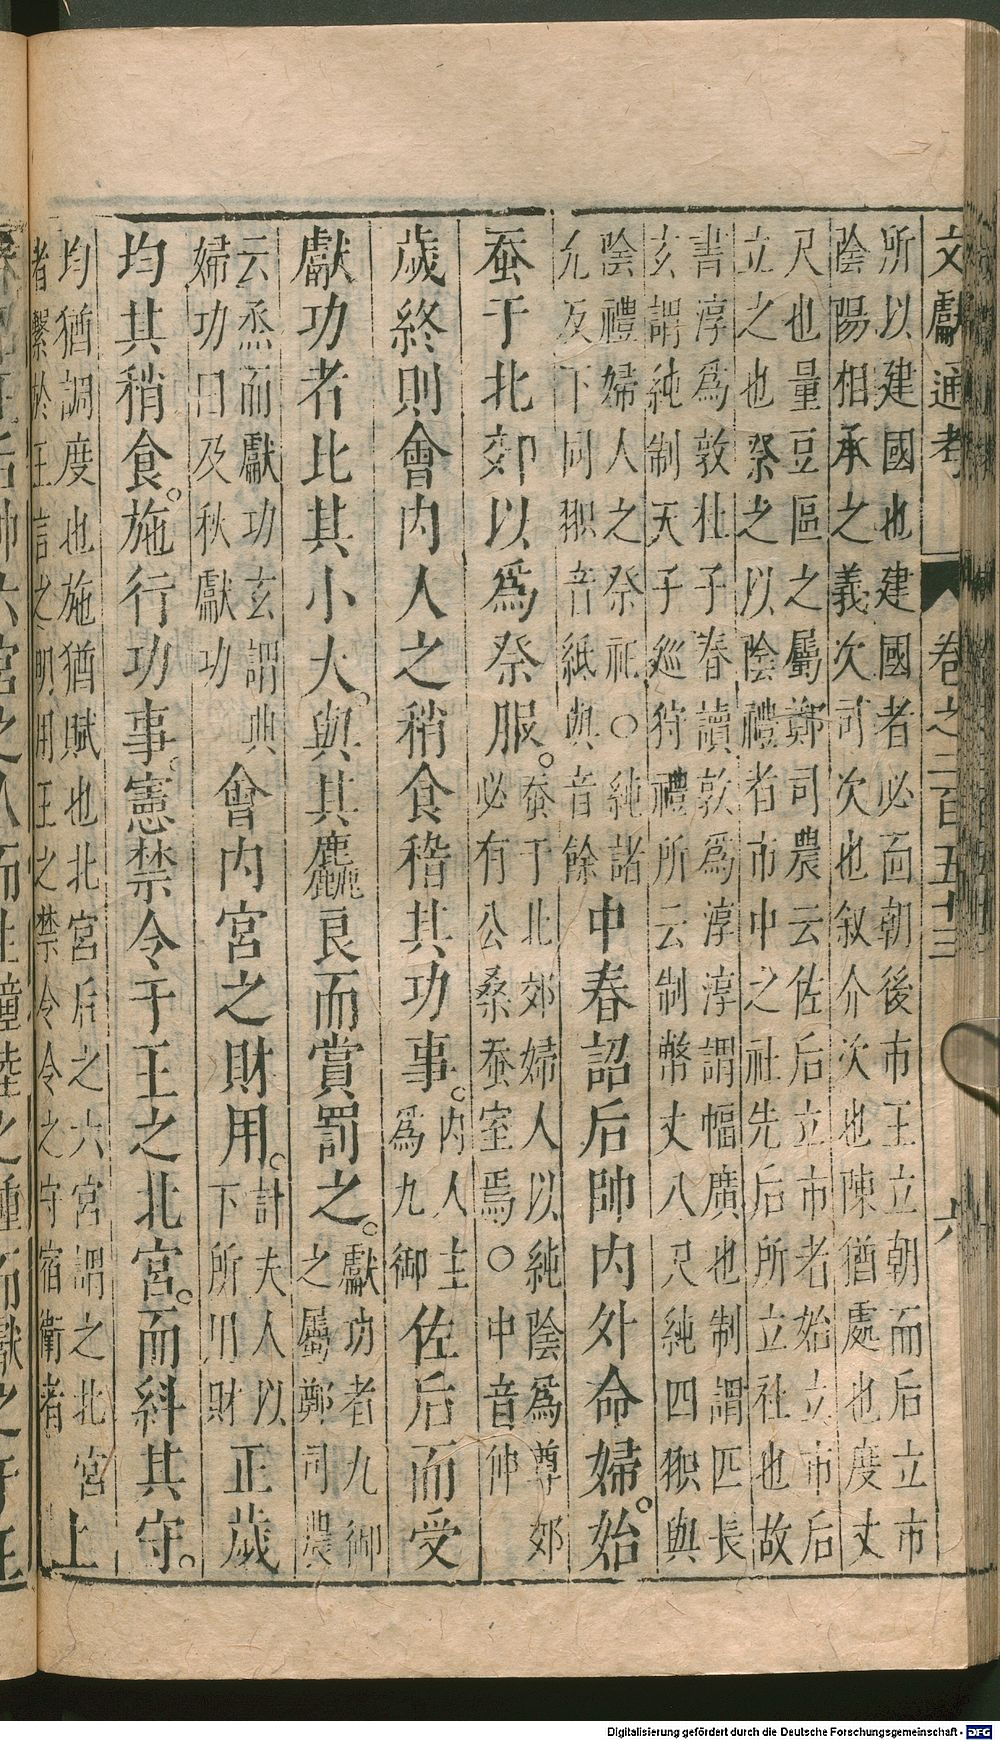 文獻通考　卷之二百五十三　六
所以建國也建國者必面朝後市王立朝而后立市
陰陽相承之義次司次也敘介次也陳猶處也度丈
尺也量豆區之屬鄭司農云佐后立市者始立市后
立之也祭之以陰禮者市中之社先后所立社也故
書淳爲敦杜子春讀敦爲淳淳謂幅廣也制謂匹長
玄謂純制天子巡狩禮所云制幣丈八尺純四與
陰禮婦人之祭祀○純諸
允反下同音紙與音餘
中春詔后帥内外命婦。始
蚕于北郊以爲祭服。
蚕于北郊婦人以純陰爲尊郊
必有公桑蚕室焉○中音仲
歲終則會内人之稍食稽其功事。
内人主
爲九御
佐后而受
獻功者比其小大。與其麤良而賞罰之。
獻功者九御
之屬鄭司農
云烝而獻功玄謂典
婦功曰及秋獻功
會内宮之財用。
計夫人以
下所用財
正歲
均其稍食。施行功事。憲禁令于王之北宮。而糾其守。
均猶調度也施猶賦也北宮后之六宮謂之北宮
者繫於王言之明用王之禁令令之守宿衛者
上
后帥六宮之人而生穜稑之種而獻之于王
Digitalisierung gefördert durch die Deutsche Forschungsgemeinschaft - DFG